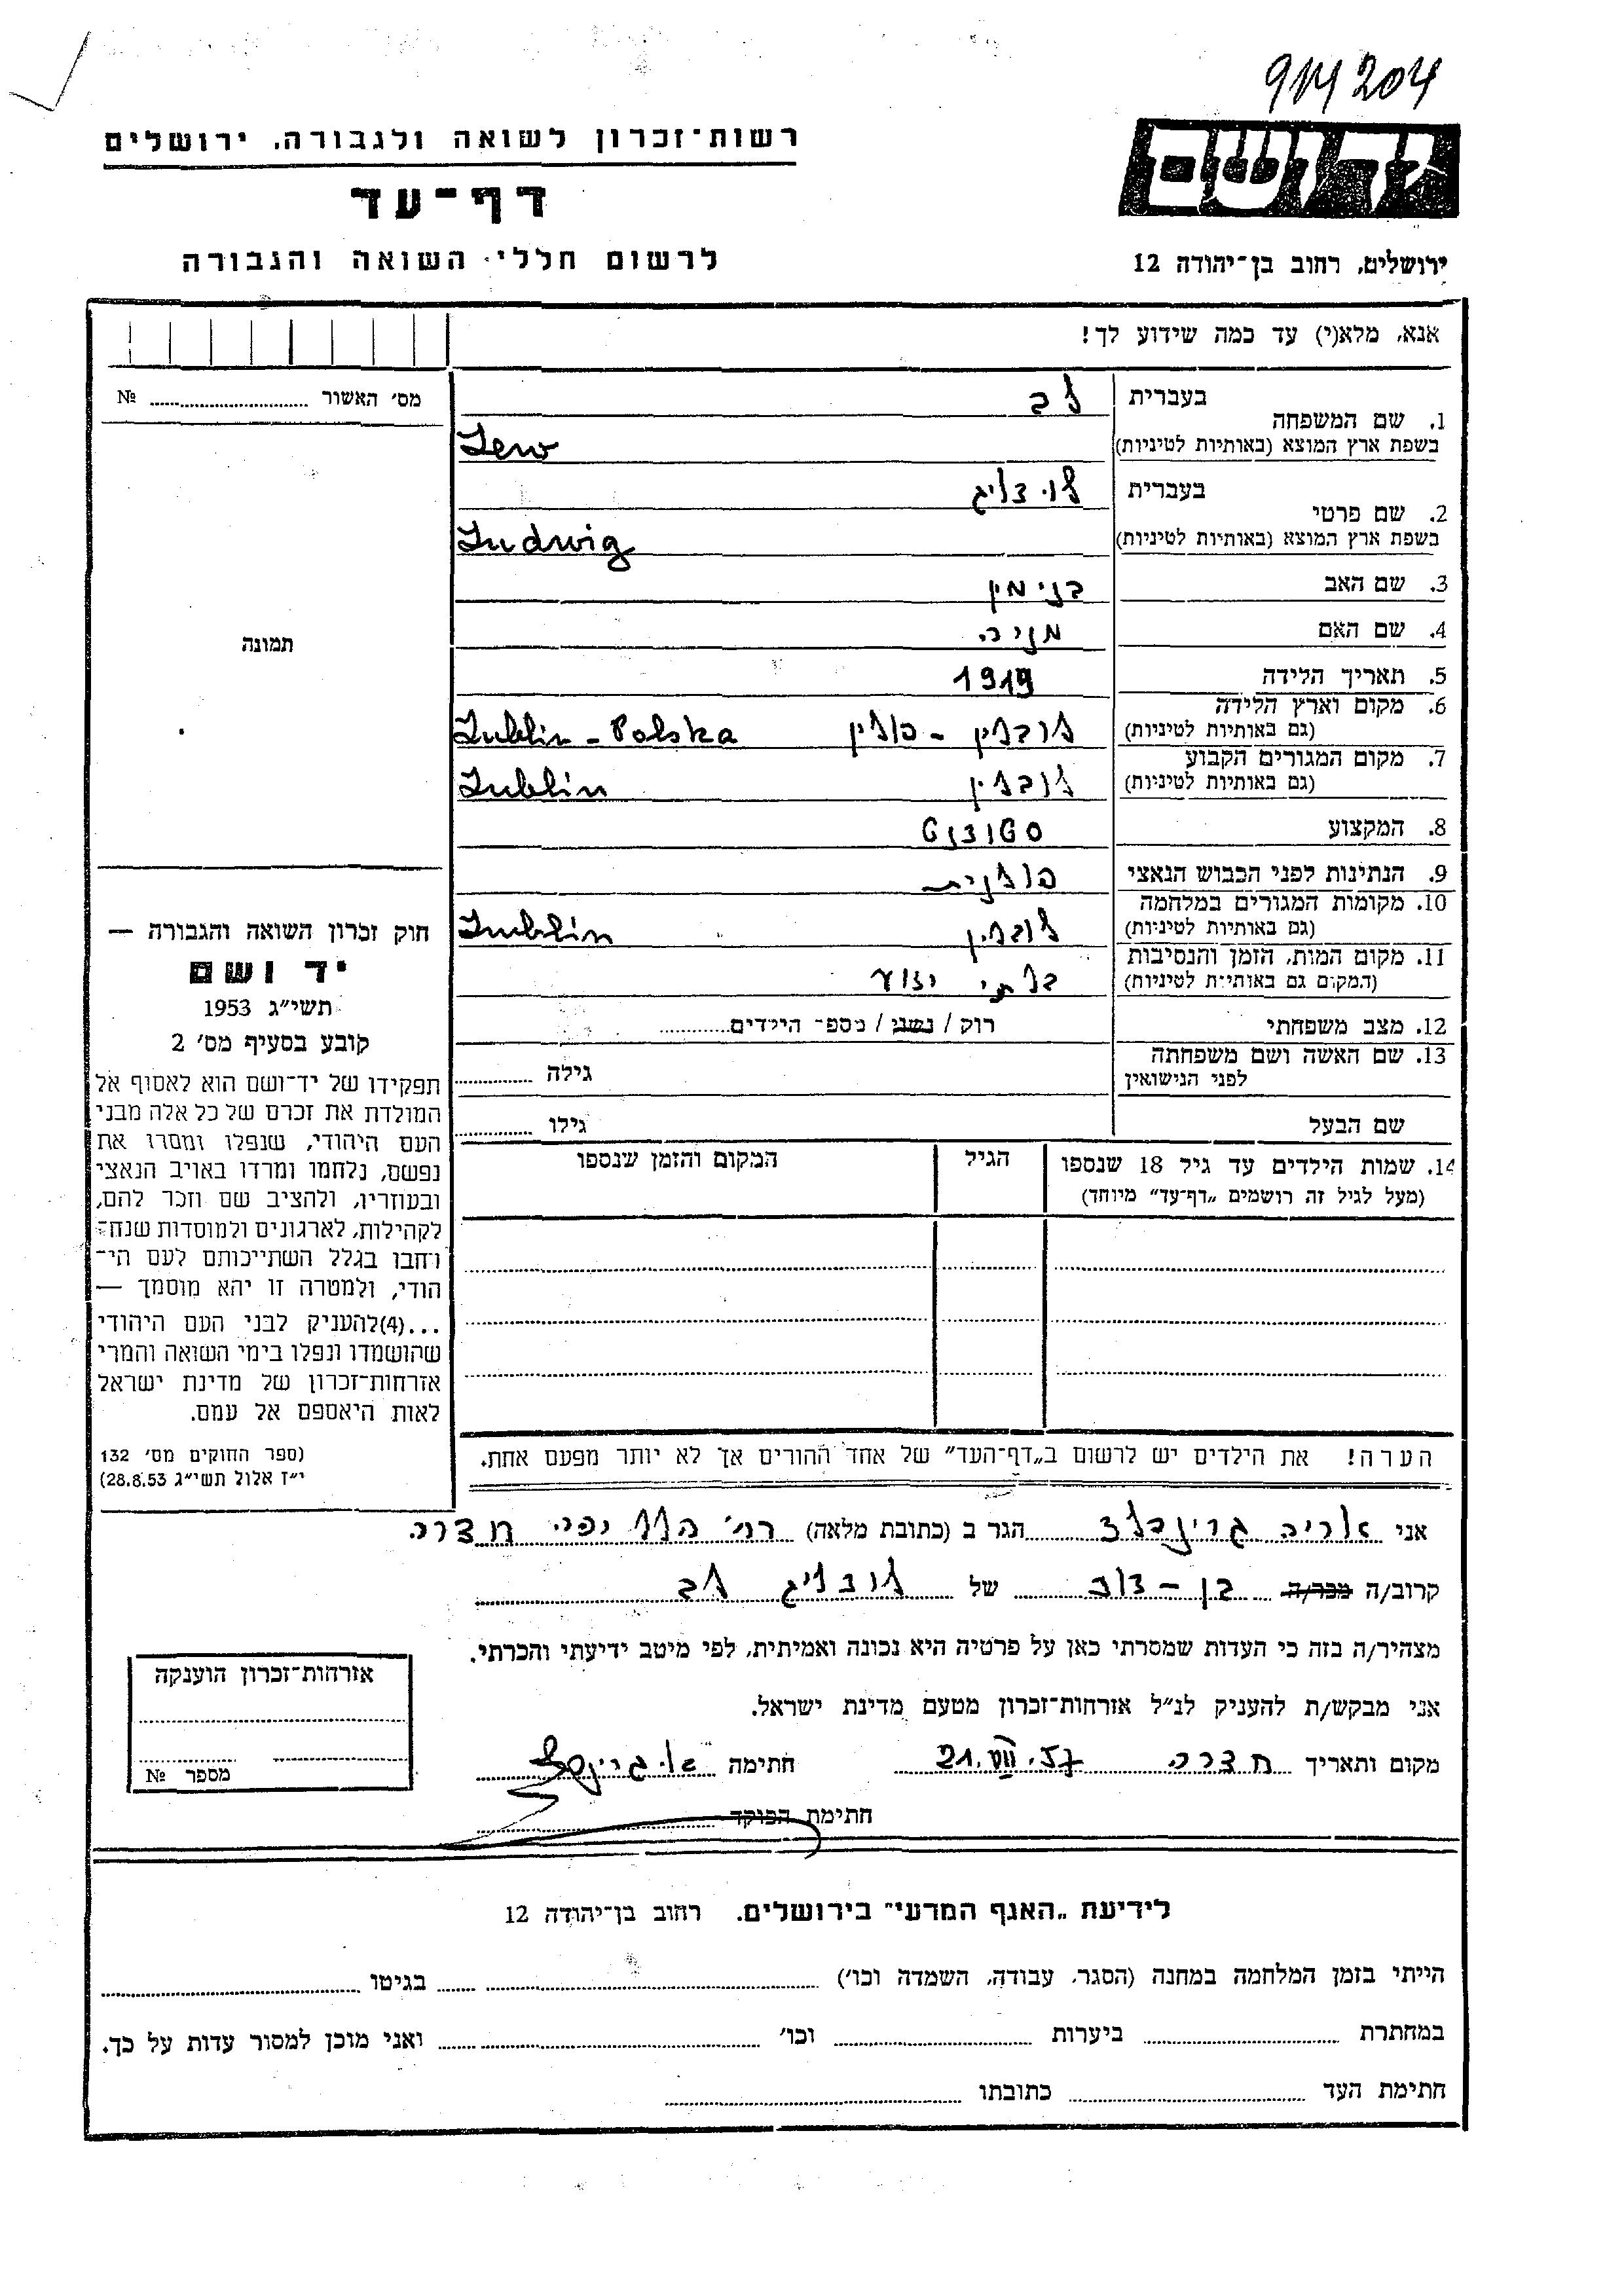 914204
רשות־זכרון לשואה ולגבורה, ירושלים
ידושם
דף־עד
לרשום חללי השואה והגבורה
ירושלים, רחוב בן־יהודה 12
אנא, מלא(י) עד כמה שידוע לך!
מס׳ האשור ........ №
1. שם המשפחה
בעברית לב
בשפת ארץ המוצא (באותיות לטיניות) Lew
2. שם פרטי
בעברית לודויג
בשפת ארץ המוצא (באותיות לטיניות) Ludwig
3. שם האב בנימין
4. שם האם מניה
תמונה
5. תאריך הלידה 1919
6. מקום וארץ הלידה לובלין - פולין Lublin - Polska
(גם באותיות לטיניות)
7. מקום המגורים הקבוע לובלין Lublin
(גם באותיות לטיניות)
8. המקצוע סטודנט
9. הנתינות לפני הכבוש הנאצי פולנית
10. מקומות המגורים במלחמה לובלין Lublin
(גם באותיות לטיניות)
11. מקום המות, הזמן והנסיבות בלתי ידוע
(המקום גם באותיות לטיניות)
12. מצב משפחתי רוק / נשוי / מספר הילדים
13. שם האשה ושם משפחתה
לפני הנישואין גילה
שם הבעל גילו
14. שמות הילדים עד גיל 18 שנספו
(מעל לגיל זה רושמים „דף־עד״ מיוחד)
הגיל
המקום והזמן שנספו
הערה! את הילדים יש לרשום ב„דף־העד״ של אחד ההורים אך לא יותר מפעם אחת.
חוק זכרון השואה והגבורה —
יד ושם
תשי״ג 1953
קובע בסעיף מס׳ 2
תפקידו של יד־ושם הוא לאסוף אל
המולדת את זכרם של כל אלה מבני
העם היהודי, שנפלו ומסרו את
נפשם, נלחמו ומרדו באויב הנאצי
ובעוזריו, ולהציב שם וזכר להם,
לקהילות, לארגונים ולמוסדות שנח־
רחבו בגלל השתייכותם לעם הי־
הודי, ולמטרה זו יהא מוסמך —
...(4)להעניק לבני העם היהודי
שהושמדו ונפלו בימי השואה והמרי
אזרחות־זכרון של מדינת ישראל
לאות היאספם אל עמם.
(ספר החוקים מס׳ 132
י״ז אלול תשי״ג 28.8.53)
אני אריה גרינבלד הגר ב (כתובת מלאה) רח׳ הלל יפה חדרה
קרוב/ה מכר/ה בן - דוד של לודויג לב
מצהיר/ה בזה כי העדות שמסרתי כאן על פרטיה היא נכונה ואמיתית, לפי מיטב ידיעתי והכרתי.
אני מבקש/ת להעניק לנ״ל אזרחות־זכרון מטעם מדינת ישראל.
מקום ותאריך חדרה 21.VII.57 חתימה א. גרינבלד
חתימת הפוקד
אזרחות־זכרון הוענקה
מספר №
לידיעת „האגף המדעי״ בירושלים. רחוב בן־יהודה 12
הייתי בזמן המלחמה במחנה (הסגר, עבודה, השמדה וכו׳) בגיטו
במחתרת ביערות וכו׳ ואני מוכן למסור עדות על כך.
חתימת העד כתובתו